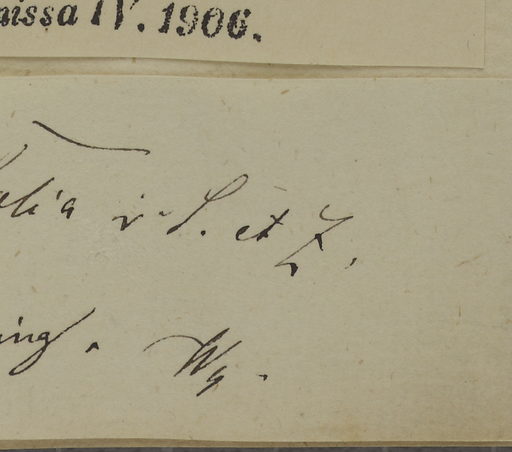 missa IV. 1906.
folia v. S. et Z.
ing. Wg.